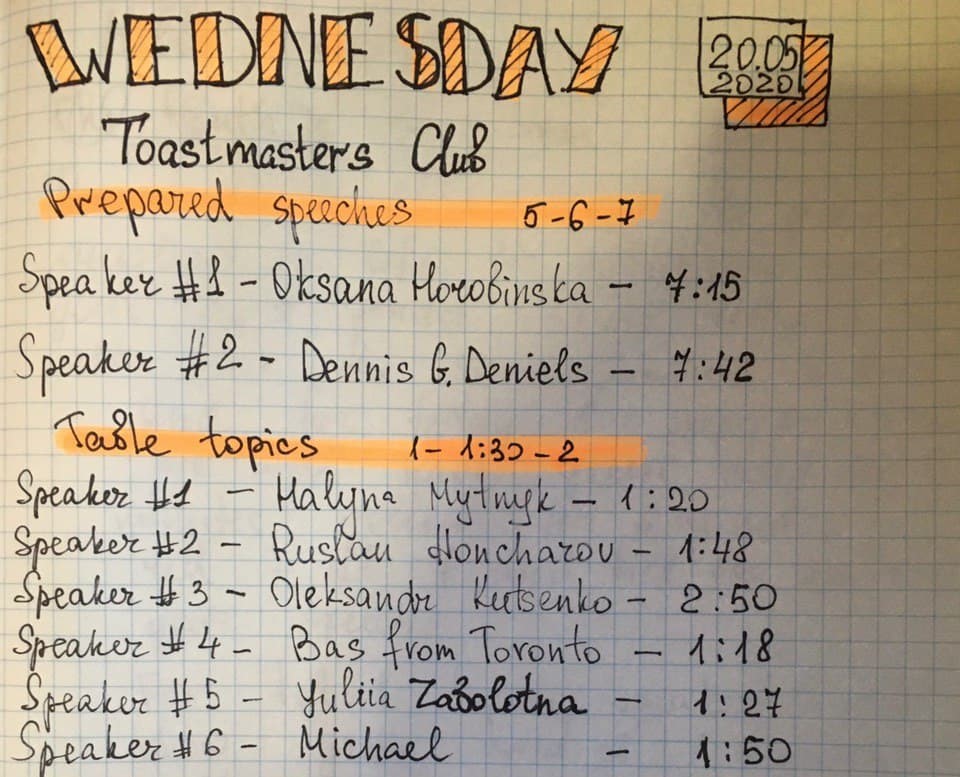 WEDNESDAY
20.05
2020
Toastmasters Club
Prepared speeches 5-6-7
Speaker #1 - Oksana Horobinska - 7:15
Speaker #2 - Dennis G. Deniels - 7:42
Table topics 1- 1:30 - 2
Speaker #1 - Halyna Mytnyk - 1:20
Speaker #2 - Ruslan Honcharov - 1:48
Speaker #3 - Oleksandr Kutsenko - 2:50
Speaker #4 - Bas from Toronto - 1:18
Speaker #5 - Yuliia Zabolotna - 1:27
Speaker #6 - Michael - 1:50